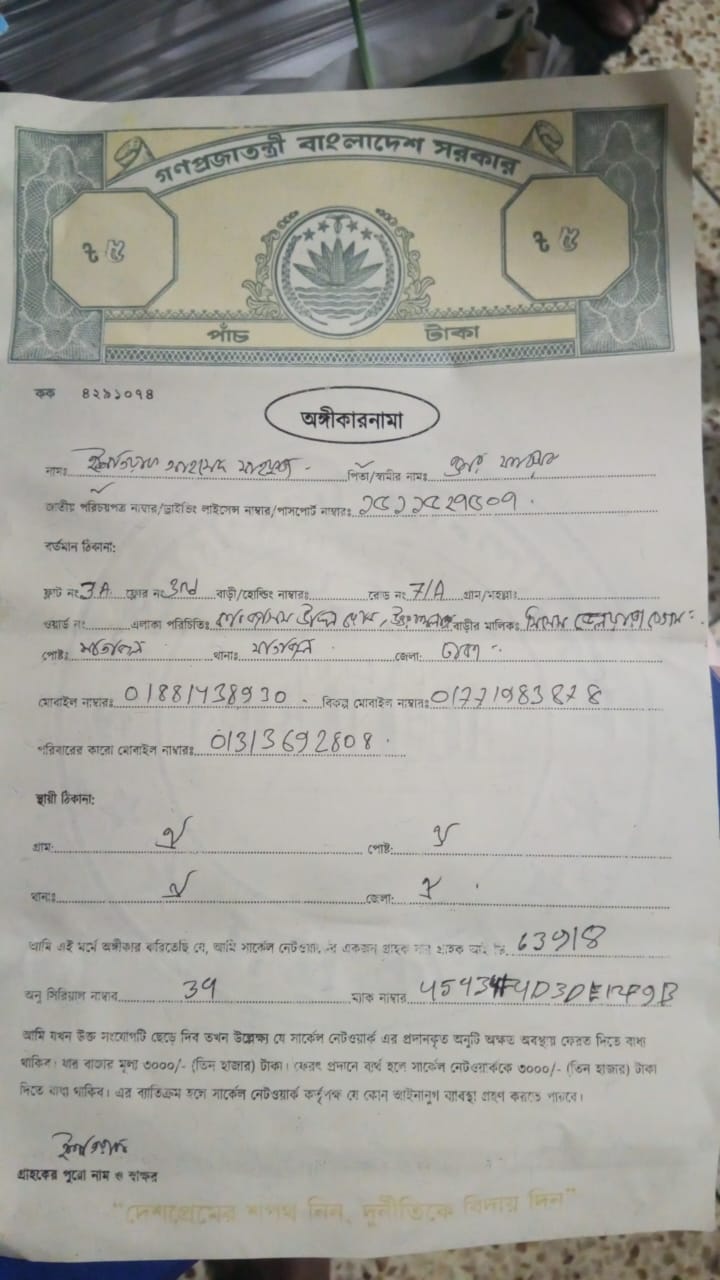 গণপ্রজাতন্ত্রী বাংলাদেশ সরকার
৳ ৫ ৳ ৫
পাঁচ টাকা
কক ৪২৯১০৭৪
অঙ্গীকারনামা
নামঃ আহমেদ পিতা/স্বামীর নামঃ
জাতীয় পরিচয়পত্র নাম্বার/ড্রাইভিং লাইসেন্স নাম্বার/পাসপোর্ট নাম্বারঃ
বর্তমান ঠিকানা:
ফ্লাট নং 3A ফ্লোর নং 3rd বাড়ী/হোল্ডিং নাম্বারঃ রোড নং 7/A গ্রাম/মহল্লাঃ
ওয়ার্ড নং এলাকা পরিচিতিঃ বাড়ীর মালিকঃ
পোষ্টঃ থানাঃ জেলা: ঢাকা
মোবাইল নাম্বারঃ 01881438930 বিকল্প মোবাইল নাম্বারঃ 01771983878
পরিবারের কারো মোবাইল নাম্বারঃ 01313692808
স্থায়ী ঠিকানা:
গ্রাম: ঐ পোষ্ট: ঐ
থানাঃ ঐ জেলা: ঐ
আমি এই মর্মে অঙ্গীকার করিতেছি যে, আমি সার্কেল নেটওয়ার্ক এর একজন গ্রাহক যার গ্রাহক আই ডি 63918
অনু সিরিয়াল নাম্বার 39 ম্যাক নাম্বার
আমি যখন উক্ত সংযোগটি ছেড়ে দিব তখন উল্লেক্ষ্য যে সার্কেল নেটওয়ার্ক এর প্রদানকৃত অনুটি অক্ষত অবস্থায় ফেরত দিতে বাধ্য
থাকিব। যার বাজার মূল্য ৩০০০/- (তিন হাজার) টাকা। ফেরৎ প্রদানে ব্যর্থ হলে সার্কেল নেটওয়ার্ককে ৩০০০/- (তিন হাজার) টাকা
দিতে বাধ্য থাকিব। এর ব্যতিক্রম হলে সার্কেল নেটওয়ার্ক কর্তৃপক্ষ যে কোন আইনানুগ ব্যবস্থা গ্রহণ করতে পারবে।
গ্রাহকের পুরো নাম ও স্বাক্ষর
"দেশপ্রেমের শপথ নিন, দুর্নীতিকে বিদায় দিন"